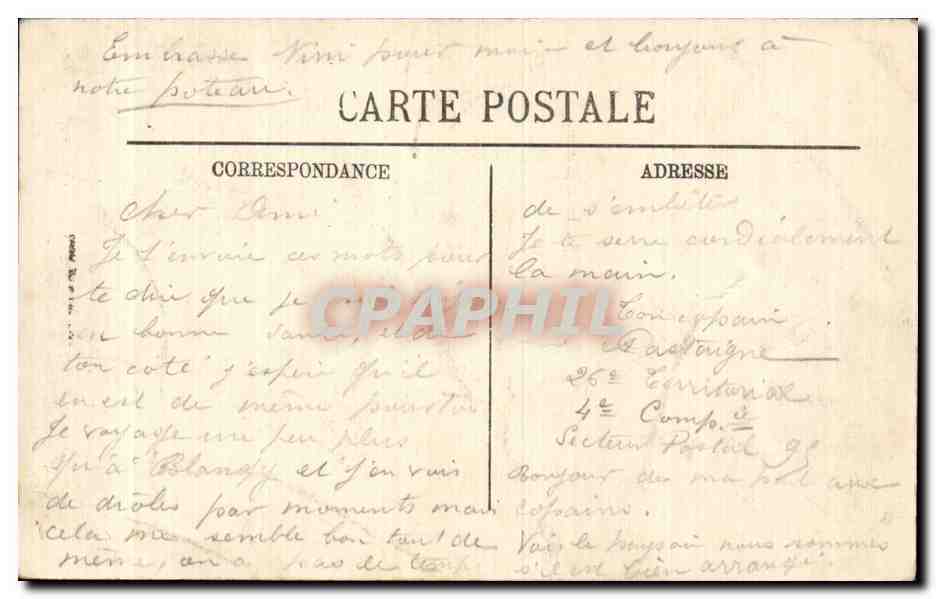 Embrasse Nini pour moi et bonjour à
notre poteau.
CARTE POSTALE
CORRESPONDANCE
ADRESSE
Cher Ami
Je t'envoie ces mots pour
te dire que je suis
en bonne santé, et de
ton coté j'espère qu'il
en est de même pour toi
Je voyage un peu plus
qu'à Blangy et j'en vois
de drôles par moments mais
cela me semble bon tout de
même, on a pas le temps
de s'embêter
Je te serre cordialement
la main.
Ton copain
26e Territorial
4e Comp.ie
Secteur Postal 95
Bonjour de ma part aux
copains.
Vois le pays où nous sommes
s'il est bien arrangé.
CPAPHIL